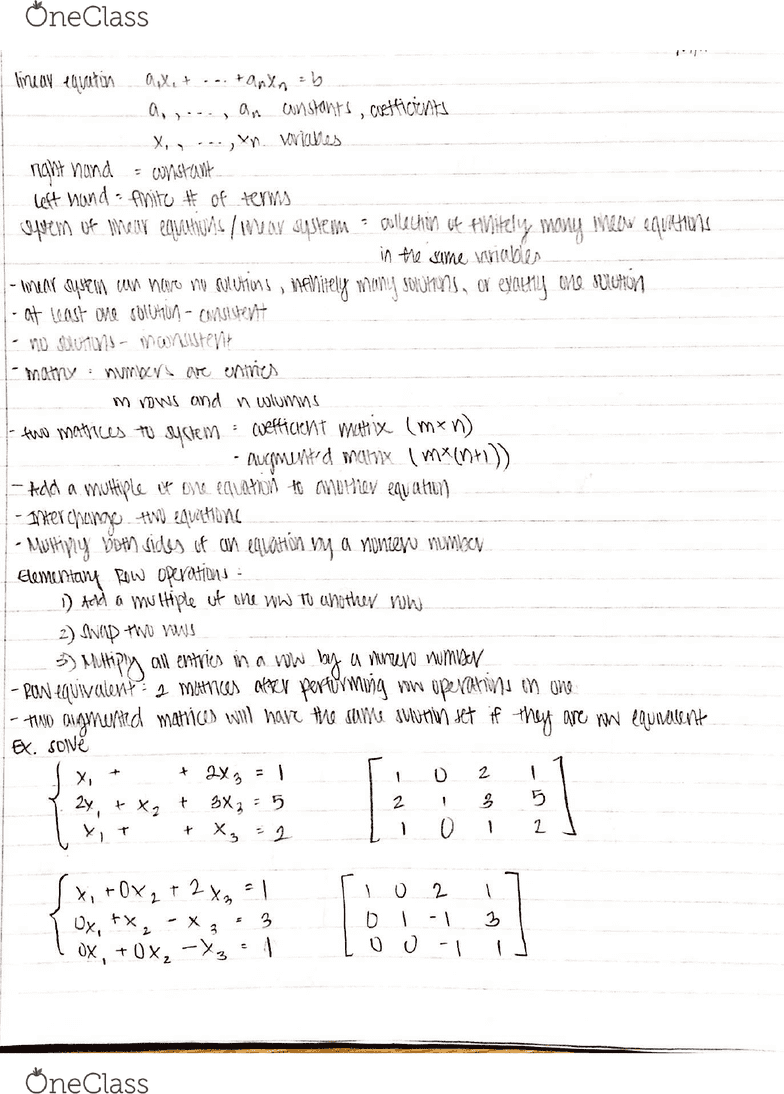 OneClass
linear equation a₁x₁ + ... + aₙxₙ = b
a₁, ..., aₙ constants, coefficients
x₁, ..., xₙ variables
right hand = constant
left hand = finite # of terms
system of linear equations / linear system = collection of finitely many linear equations
in the same variables
- linear system can have no solutions, infinitely many solutions, or exactly one solution
- at least one solution - consistent
- no solutions - inconsistent
- matrix : numbers are entries
m rows and n columns
- two matrices to system = coefficient matrix (m×n)
- augmented matrix (m×(n+1))
- Add a multiple of one equation to another equation
- Interchange two equations
- Multiply both sides of an equation by a nonzero number
Elementary Row operations :
1) Add a multiple of one row to another row
2) Swap two rows
3) Multiply all entries in a row by a nonzero number
- Row equivalent = 2 matrices after performing row operations on one
- two augmented matrices will have the same solution set if they are row equivalent
Ex. solve
x₁ + + 2x₃ = 1 1 0 2 1
2x₁ + x₂ + 3x₃ = 5 2 1 3 5
x₁ + + x₃ = 2 1 0 1 2
x₁ + 0x₂ + 2x₃ = 1 1 0 2 1
0x₁ + x₂ - x₃ = 3 0 1 -1 3
0x₁ + 0x₂ - x₃ = 1 0 0 -1 1
OneClass